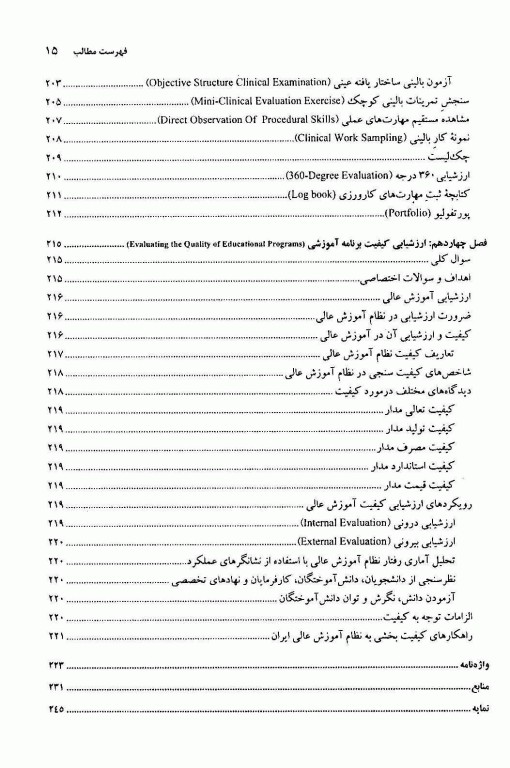 فهرست مطالب ۱۵
آزمون بالینی ساختار یافته عینی (Objective Structure Clinical Examination) ۲۰۳
سنجش تمرینات بالینی کوچک (Mini-Clinical Evaluation Exercise) ۲۰۵
مشاهده مستقیم مهارت‌های عملی (Direct Observation Of Procedural Skills) ۲۰۷
نمونۀ کارِ بالینی (Clinical Work Sampling) ۲۰۸
چک‌لیست ۲۰۹
ارزشیابی ۳۶۰ درجه (360-Degree Evaluation) ۲۱۰
کتابچۀ ثبتِ مهارت‌های کارورزی (Log book) ۲۱۱
پورتفولیو (Portfolio) ۲۱۲
فصل چهاردهم: ارزشیابی کیفیت برنامه آموزشی (Evaluating the Quality of Educational Programs) ۲۱۵
سوال کلی ۲۱۵
اهداف و سوالات اختصاصی ۲۱۵
ارزشیابی آموزش عالی ۲۱۶
ضرورت ارزشیابی در نظام آموزش عالی ۲۱۶
کیفیت و ارزشیابی آن در آموزش عالی ۲۱۶
تعاریف کیفیت نظام آموزش عالی ۲۱۷
شاخص‌های کیفیت سنجی در نظام آموزش عالی ۲۱۸
دیدگاه‌های مختلف درمورد کیفیت ۲۱۸
کیفیت تعالی مدار ۲۱۹
کیفیت تولید مدار ۲۱۹
کیفیت مصرف مدار ۲۱۹
کیفیت استاندارد مدار ۲۱۹
کیفیت قیمت مدار ۲۱۹
رویکردهای ارزشیابی کیفیت آموزش عالی ۲۱۹
ارزشیابی درونی (Internal Evaluation) ۲۱۹
ارزشیابی بیرونی (External Evaluation) ۲۲۰
تحلیل آماری رفتار نظام آموزش عالی با استفاده از نشانگرهای عملکرد ۲۲۰
نظرسنجی از دانشجویان، دانش‌آموختگان، کارفرمایان و نهادهای تخصصی ۲۲۰
آزمودن دانش، نگرش و توان دانش‌آموختگان ۲۲۰
الزامات توجه به کیفیت ۲۲۰
راهکارهای کیفیت بخشی به نظام آموزش عالی ایران ۲۲۱
واژه‌نامه ۲۲۳
منابع ۲۳۱
نمایه ۲۴۵